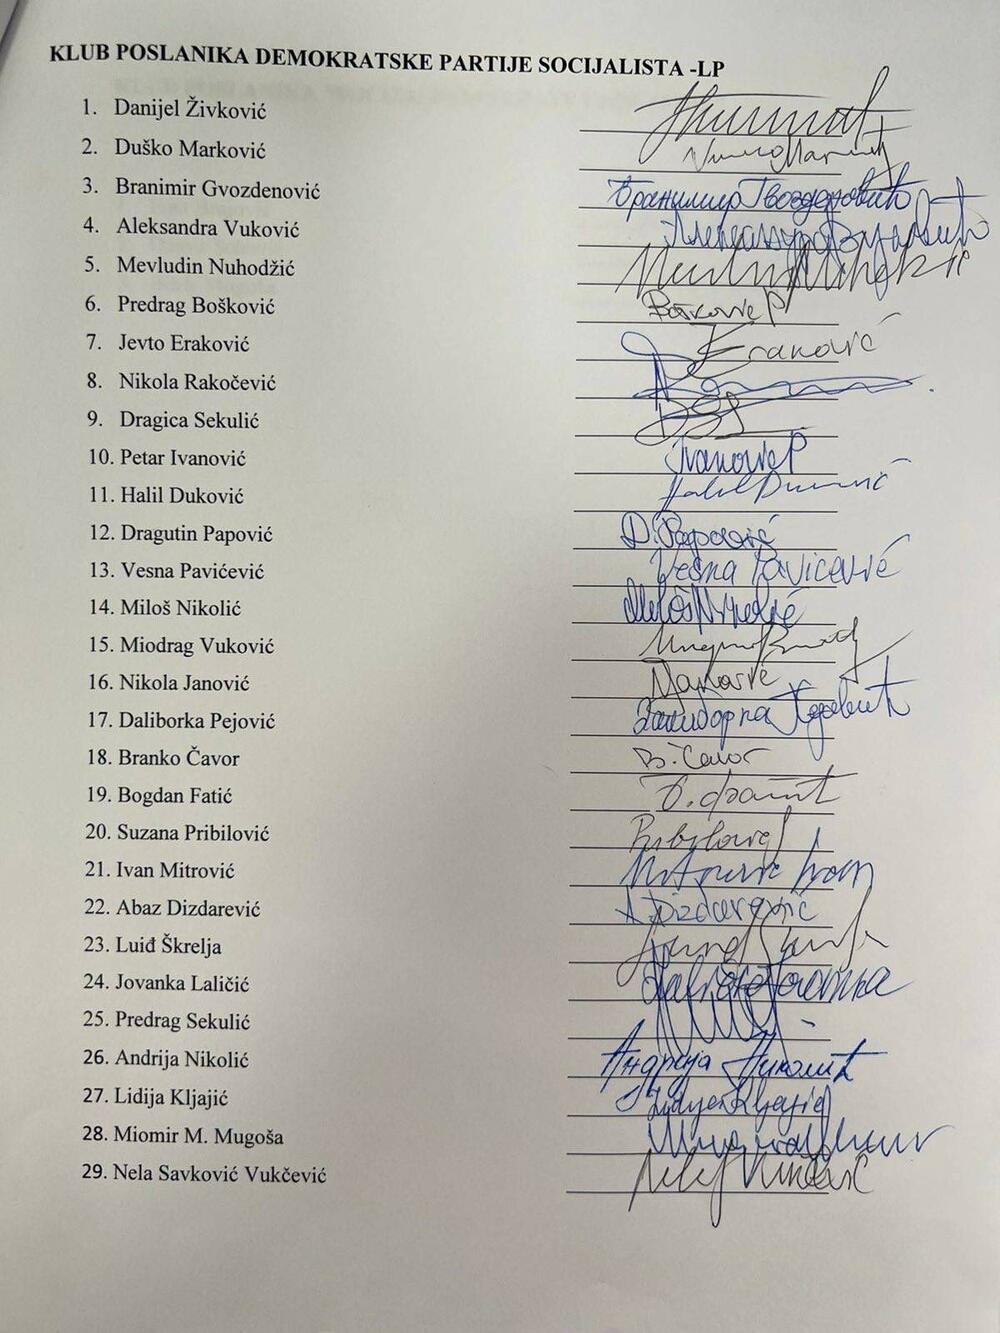 KLUB POSLANIKA DEMOKRATSKE PARTIJE SOCIJALISTA -LP
1. Danijel Živković
2. Duško Marković
3. Branimir Gvozdenović Бранимир Гвозденовић
4. Aleksandra Vuković Александра Вуковић
5. Mevludin Nuhodžić
6. Predrag Bošković Bošković P
7. Jevto Eraković Eraković
8. Nikola Rakočević
9. Dragica Sekulić
10. Petar Ivanović Ivanović P
11. Halil Duković Halil Duković
12. Dragutin Papović D. Papović
13. Vesna Pavićević Vesna Pavićević
14. Miloš Nikolić Miloš Nikolić
15. Miodrag Vuković
16. Nikola Janović Janović
17. Daliborka Pejović Далиборка Пејовић
18. Branko Čavor B. Čavor
19. Bogdan Fatić
20. Suzana Pribilović
21. Ivan Mitrović Mitrović Ivan
22. Abaz Dizdarević A Dizdarević
23. Luiđ Škrelja
24. Jovanka Laličić Laličić Jovanka
25. Predrag Sekulić
26. Andrija Nikolić Андрија Николић
27. Lidija Kljajić Lidija Kljajić
28. Miomir M. Mugoša
29. Nela Savković Vukčević